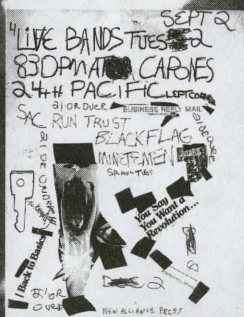 SEPT 2
"LIVE BANDS TUES 2
830PM AT CAPONES
24TH PACIFIC LEFT CORNER
21 OR OVER BUSINESS REPLY MAIL
SAC RUN TRUST
BLACK FLAG
MINUTEMEN
21 OR OVER
21 OR OVER
You Say
You Want a
Revolution...
Back to Basics
2
21 OR
OVER
NEW ALLIANCE PRESS